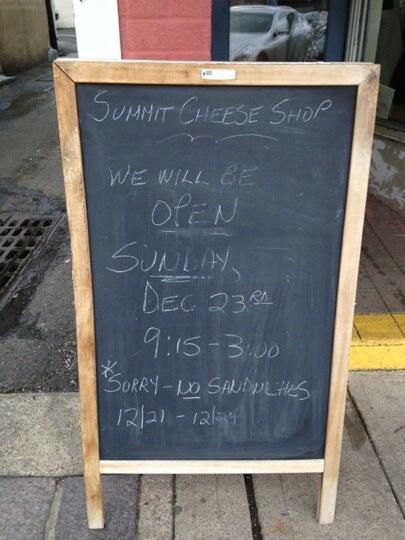 SUMMIT CHEESE SHOP
WE WILL BE
OPEN
SUNDAY,
DEC 23RD
9:15-3:00
*SORRY - NO SANDWICHES
12/21 - 12/24